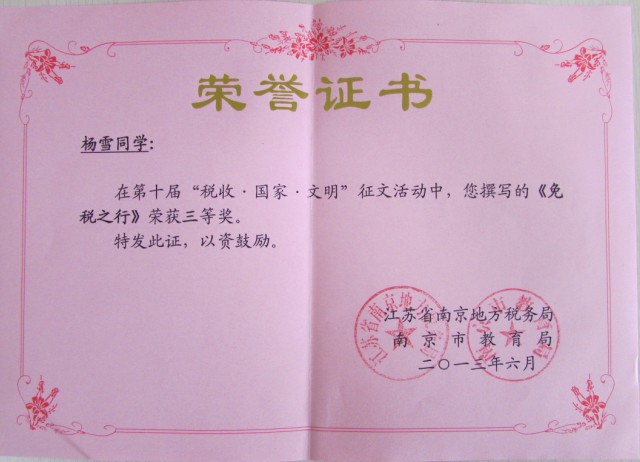 荣誉证书
杨雪同学：
在第十届“税收·国家·文明”征文活动中，您撰写的《免
税之行》荣获三等奖。
特发此证，以资鼓励。
江苏省南京地方税务局
南京市教育局
二〇一三年六月